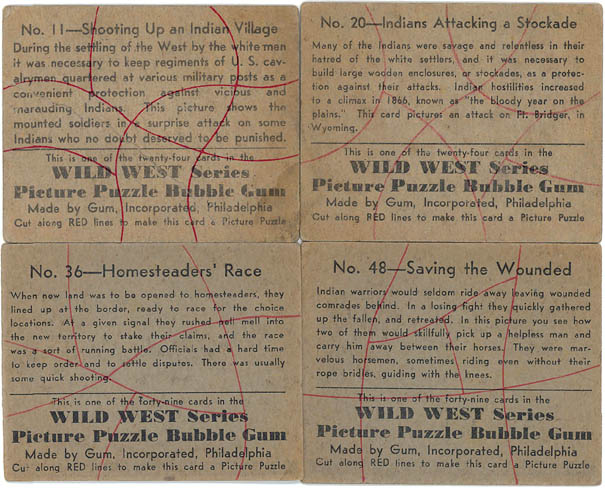 No. 11—Shooting Up an Indian Village
During the settling of the West by the white men
it was necessary to keep regiments of U. S. cav-
alrymen quartered at various military posts as a
convenient protection against vicious and
marauding Indians. This picture shows the
mounted soldiers in a surprise attack on some
Indians who no doubt deserved to be punished.
This is one of the twenty-four cards in the
WILD WEST Series
Picture Puzzle Bubble Gum
Made by Gum, Incorporated, Philadelphia
Cut along RED lines to make this card a Picture Puzzle
No. 20—Indians Attacking a Stockade
Many of the Indians were savage and relentless in their
hatred of the white settlers, and it was necessary to
build large wooden enclosures, or stockades, as a protec-
tion against their attacks. Indian hostilities increased
to a climax in 1866, known as "the bloody year on the
plains." This card pictures an attack on Ft. Bridger, in
Wyoming.
This is one of the twenty-four cards in the
WILD WEST Series
Picture Puzzle Bubble Gum
Made by Gum, Incorporated, Philadelphia
Cut along RED lines to make this card a Picture Puzzle
No. 36—Homesteaders' Race
When new land was to be opened to homesteaders, they
lined up at the border, ready to race for the choice
locations. At a given signal they rushed pell mell into
the new territory to stake their claims, and the race
was a sort of running battle. Officials had a hard time
to keep order and to settle disputes. There was usually
some quick shooting.
This is one of the forty-nine cards in the
WILD WEST Series
Picture Puzzle Bubble Gum
Made by Gum, Incorporated, Philadelphia
Cut along RED lines to make this card a Picture Puzzle
No. 48—Saving the Wounded
Indian warriors would seldom ride away leaving wounded
comrades behind. In a losing fight they quickly gathered
up the fallen, and retreated. In this picture you see how
two of them would skillfully pick up a helpless man and
carry him away between their horses. They were mar-
velous horsemen, sometimes riding even without their
rope bridles, guiding with the knees.
This is one of the forty-nine cards in the
WILD WEST Series
Picture Puzzle Bubble Gum
Made by Gum, Incorporated, Philadelphia
Cut along RED lines to make this card a Picture Puzzle